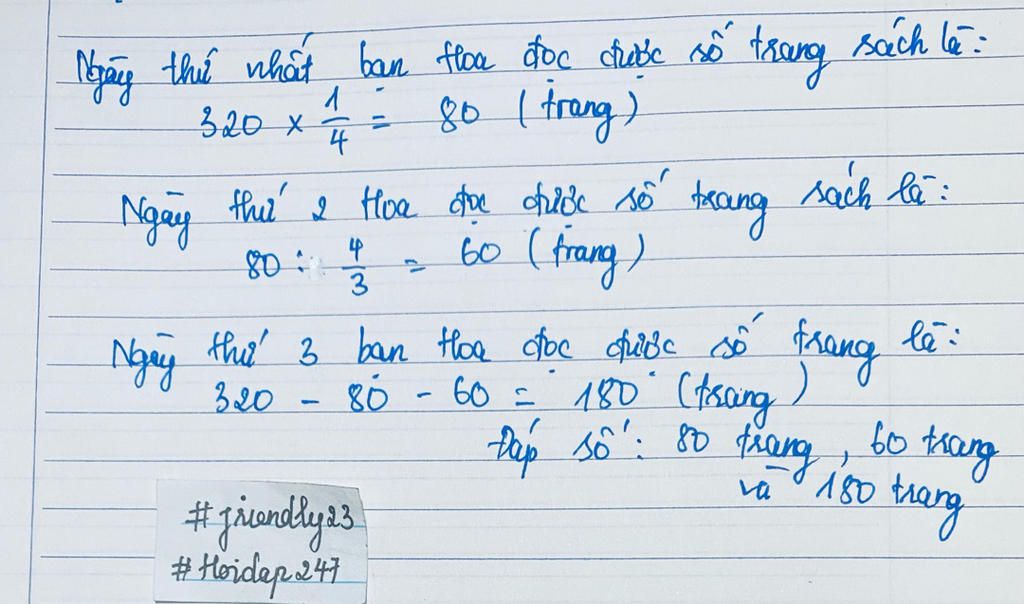 Ngày thứ nhất bạn Hoa đọc được số trang sách là:
320 × 1/4 = 80 (trang)
Ngày thứ 2 Hoa đọc được số trang sách là:
80 : 4/3 = 60 (trang)
Ngày thứ 3 bạn Hoa đọc được số trang là:
320 - 80 - 60 = 180 (trang)
Đáp số: 80 trang, 60 trang
và 180 trang
#friendly23
#Hoidap247